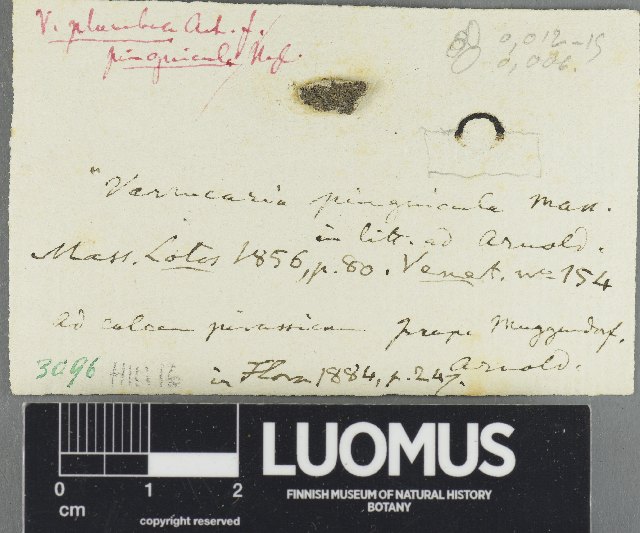 V. plumbea Ach. f.
pinguicula Nyl.
0,012-15
0,006.
"Verrucaria pinguicula Mass.
in litt. ad Arnold.
Mass. Lotos 1856, p. 80. Venet. no 154
ad calcem jurassicam prope Muggendorf,
Arnold.
3096
in Flora 1884, p. 247.
0 1 2
cm
copyright reserved
LUOMUS
FINNISH MUSEUM OF NATURAL HISTORY
BOTANY